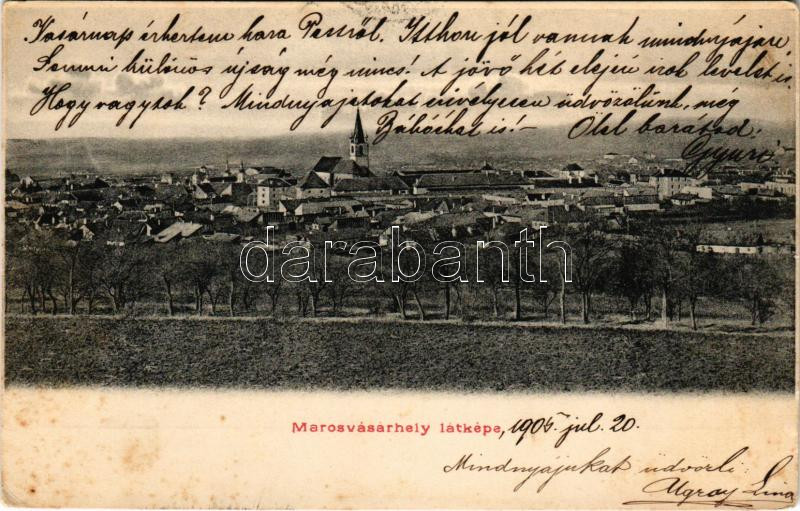 Vasárnap érkeztem haza Pestről. Itthon jól vannak mindnyájan
Semmi különös újság még nincs! A jövő hét elején irok levelet is.
Hogy vagytok? Mindnyájatokat szivélyesen üdvözölünk, még
is! – Ölel barátod
Gyuri
darabanth
Marosvásárhely látképe, 1905 jul. 20.
Mindnyájukat üdvözli:
Ugray Lina